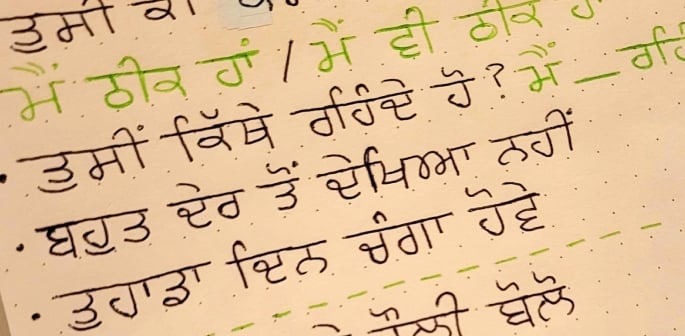 ਤੁਸੀ ਕੀ
ਮੈਂ ਠੀਕ ਹਾਂ / ਮੈਂ ਵੀ ਠੀਕ
• ਤੁਸੀਂ ਕਿੱਥੇ ਰਹਿੰਦੇ ਹੋ? ਮੈਂ —
• ਬਹੁਤ ਦੇਰ ਤੋਂ ਦੇਖਿਆ ਨਹੀਂ
• ਤੁਹਾਡਾ ਦਿਨ ਚੰਗਾ ਹੋਵੇ
ਹੌਲੀ ਬੋਲੋ